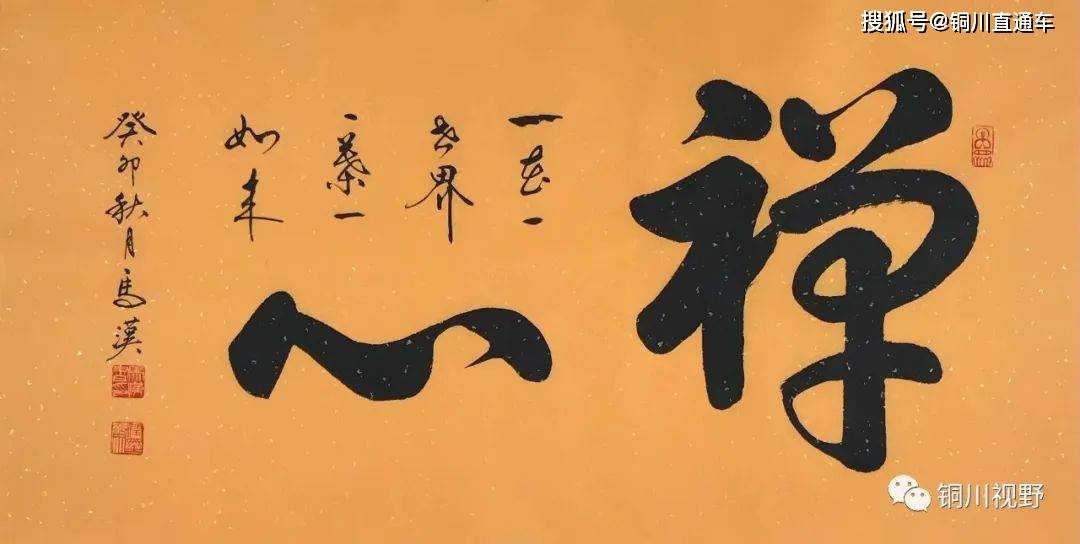 搜狐号@铜川直通车
禅心
一花一
世界
一葉一
如来
癸卯秋月馬漢
铜川视野